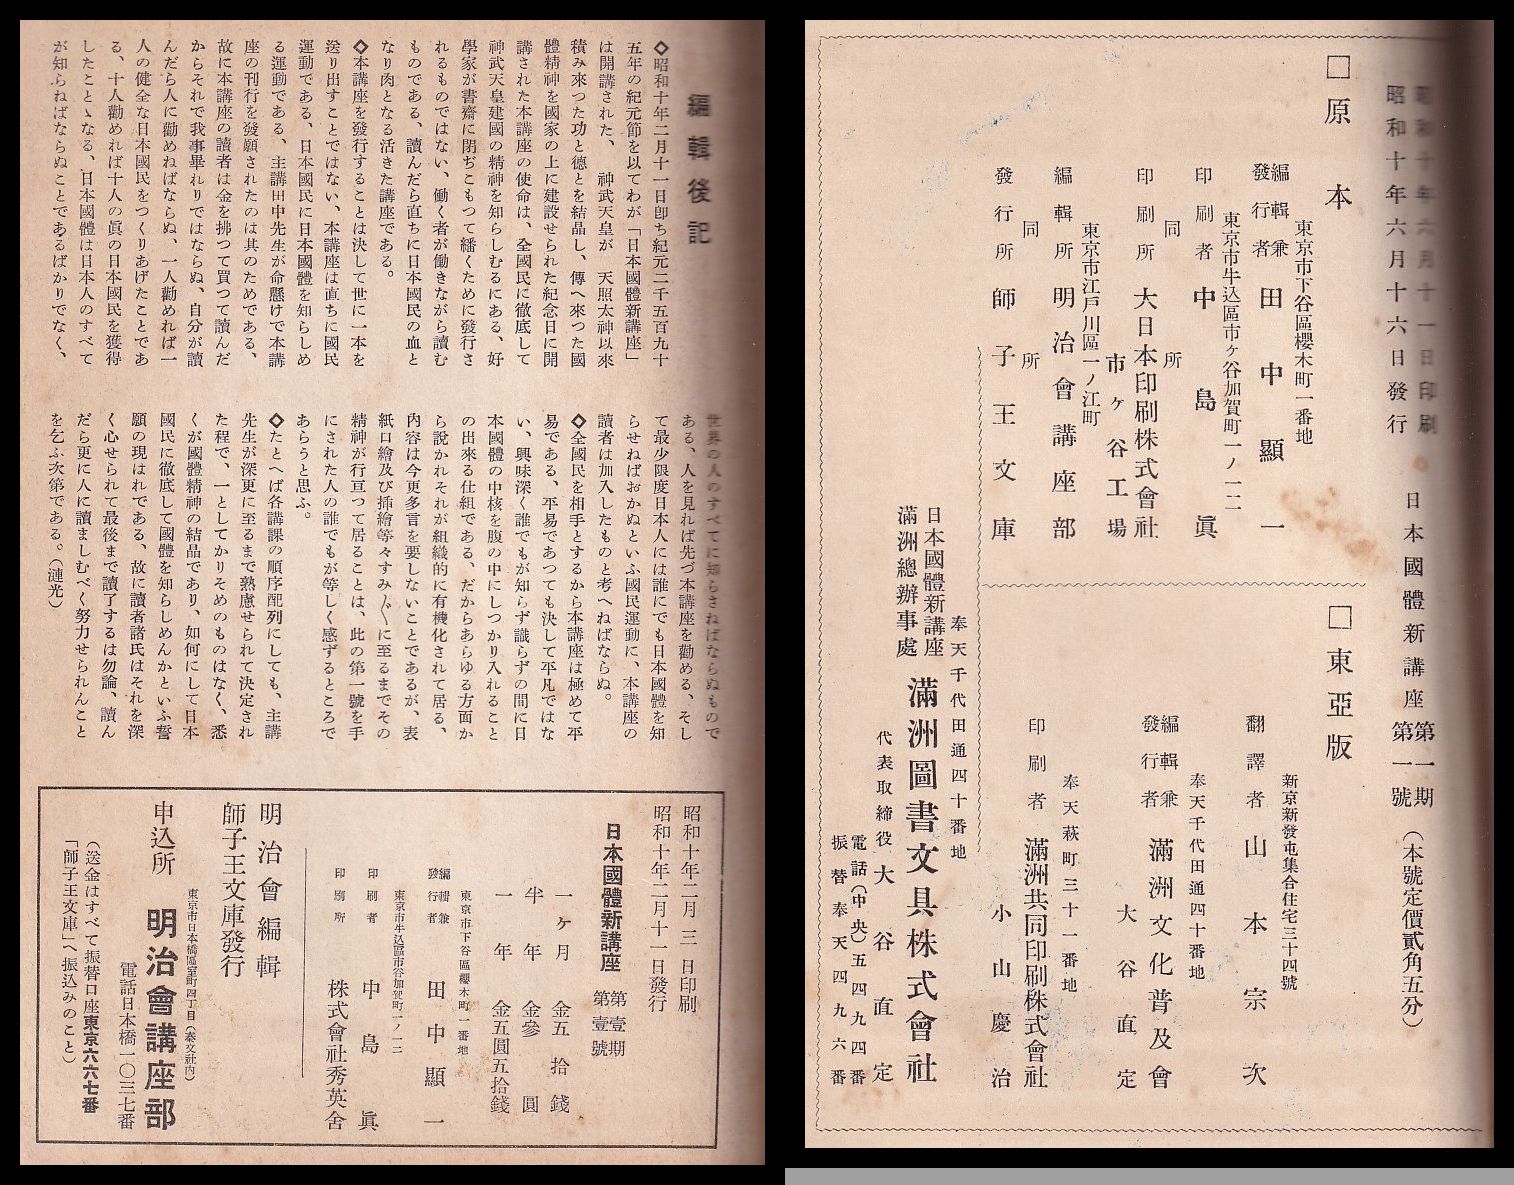 編輯後記
◇昭和十年二月十一日卽ち紀元二千五百九十
五年の紀元節を以てわが「日本國體新講座」
は開講された、神武天皇が 天照太神以來
積み來つた功と德とを結晶し、傳へ來つた國
體精神を國家の上に建設せられた紀念日に開
講された本講座の使命は、全國民に徹底して
神武天皇建國の精神を知らしむるにある、好
學家が書齋に閉ぢこもつて繙くために發行さ
れるものではない、働く者が働きながら讀む
ものである、讀んだら直ちに日本國民の血と
なり肉となる活きた講座である。
◇本講座を發行することは決して世に一本を
送り出すことではない、本講座は直ちに國民
運動である、日本國民に日本國體を知らしめ
る運動である、主講田中先生が命懸けで本講
座の刊行を發願されたのは其のためである、
故に本講座の讀者は金を拂つて買つて讀んだ
からそれで我事畢れりではならぬ、自分が讀
んだら人に勸めねばならぬ、一人勸めれば一
人の健全な日本國民をつくりあげたことであ
る、十人勸めれば十人の眞の日本國民を獲得
したとゝなる、日本國體は日本人のすべて
が知らねばならぬことであるばかりでなく、
世界の人のすべてに知らさねばならぬもので
ある、人を見れば先づ本講座を勸める、そし
て最少限度日本人には誰にでも日本國體を知
らせねばおかぬといふ國民運動に、本講座の
讀者は加入したものと考へねばならぬ。
◇全國民を相手とするから本講座は極めて平
易である、平易であつても決して平凡ではな
い、興味深く誰でもが知らず識らずの間に日
本國體の中核を腹の中にしつかり入れること
の出來る仕組である、だからあらゆる方面か
ら說かれそれが組織的に有機化されて居る、
內容は今更多言を要しないことであるが、表
紙口繪及び揷繪等々すみ〴〵に至るまでその
精神が行亙つて居ることは、此の第一號を手
にされた人の誰でもが等しく感ずるところで
あらうと思ふ。
◇たとへば各講課の順序配列にしても、主講
先生が深更に至るまで熟慮せられて決定され
た程で、一としてかりそめのものはなく、悉
くが國體精神の結晶であり、如何にして日本
國民に徹底して國體を知らしめんかといふ誓
願の現はれである、故に讀者諸氏はそれを深
く心せられて最後まで讀了するは勿論、讀ん
だら更に人に讀ましむべく努力せられんこと
を乞ふ次第である。(漣光)
昭和十年二月 三 日印刷
昭和十年二月十一日發行
日本國體新講座 第壹期
第壹號
一ヶ月 金五拾錢
半年 金參圓
一年 金五圓五拾錢
東京市下谷區櫻木町一番地
編輯兼發行者 田中顯一
東京市牛込區市谷加賀町一ノ一二
印刷者 中島眞
印刷所 株式會社秀英舍
明治會編輯
師子王文庫發行
東京市日本橋區室町四丁目(泰文社內)
申込所 明治會講座部
電話日本橋一〇三七番
(送金はすべて振替口座東京六六七番
「師子王文庫」へ振込みのこと)
昭和十年六月十一日印刷
昭和十年六月十六日發行
日本國體新講座 第一期
第一號
(本號定價貳角五分)
□原本
東京市下谷區櫻木町一番地
編輯兼發行者 田中顯一
東京市牛込區市ヶ谷加賀町一ノ一二
印刷者 中島眞
同所
印刷所 大日本印刷株式會社
市ヶ谷工場
東京市江戶川區一ノ江町
編輯所 明治會講座部
同所
發行所 師子王文庫
□東亞版
新京新發屯集合住宅三十四號
翻譯者 山本宗次
奉天千代田通四十番地
編輯兼發行者 滿洲文化普及會
大谷直定
奉天萩町三十一番地
印刷者 滿洲共同印刷株式會社
小山慶治
奉天千代田通四十番地
日本國體新講座
滿洲總辦事處
滿洲圖書文具株式會社
代表取締役 大谷直定
電話(中央)五四九四番
振替奉天四九六番